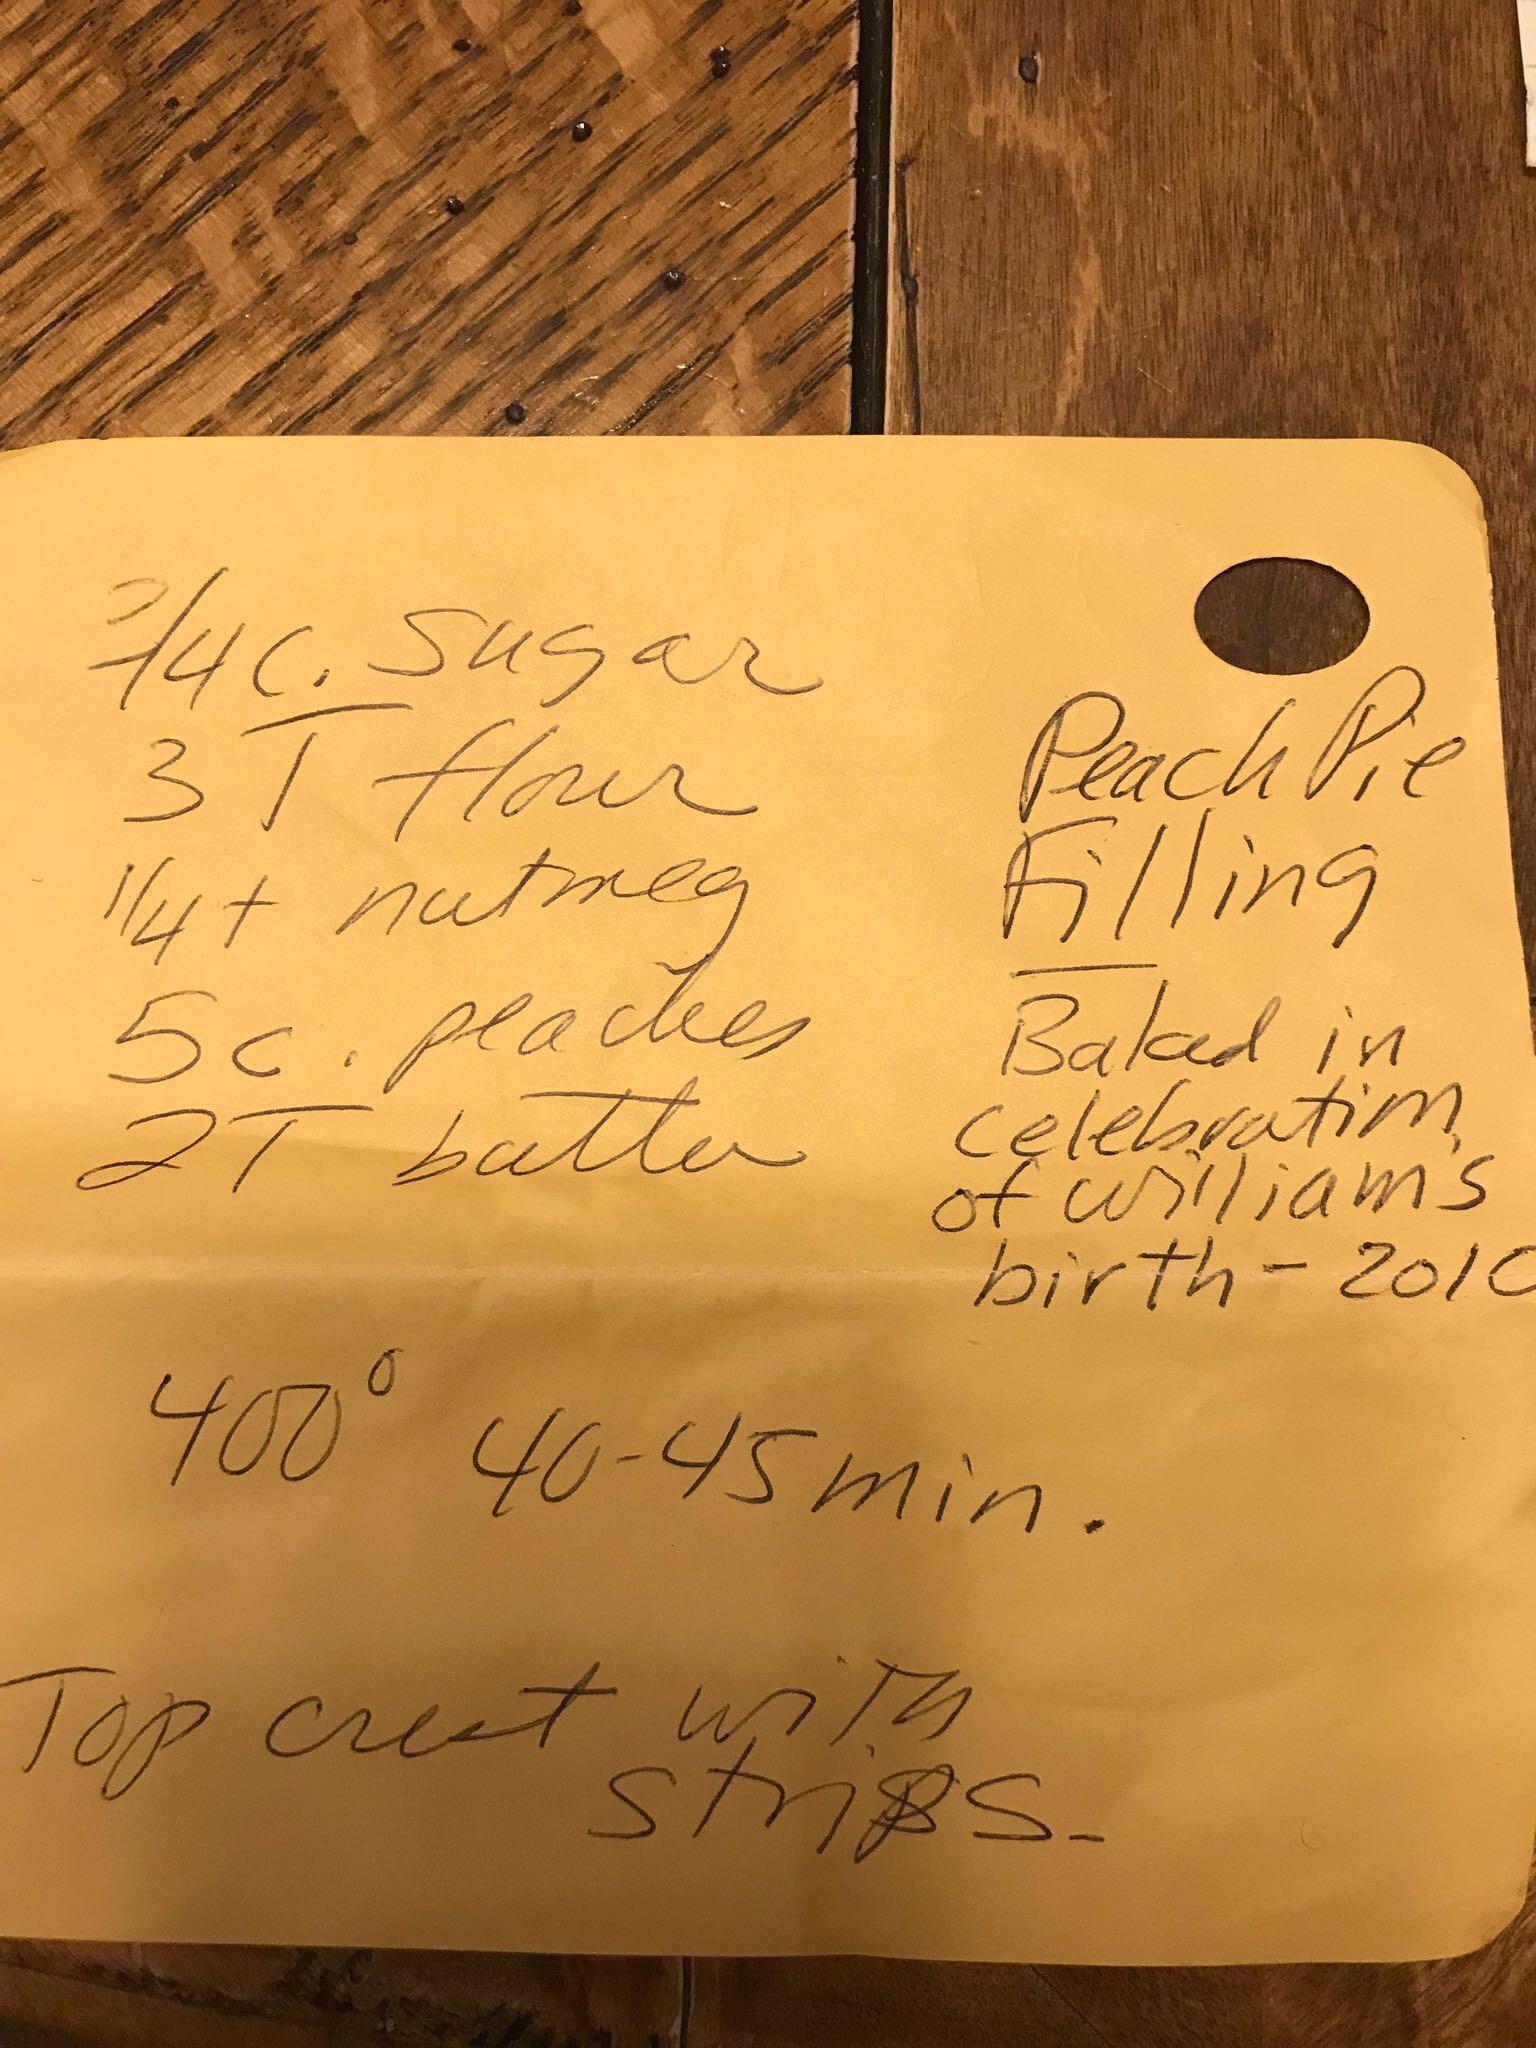 3/4 c. sugar
3 T flour
1/4 t nutmeg
5 c. peaches
2 T butter
Peach Pie
Filling
Baked in
celebration
of William's
birth - 2010
400° 40-45 min.
Top crust with
strips.